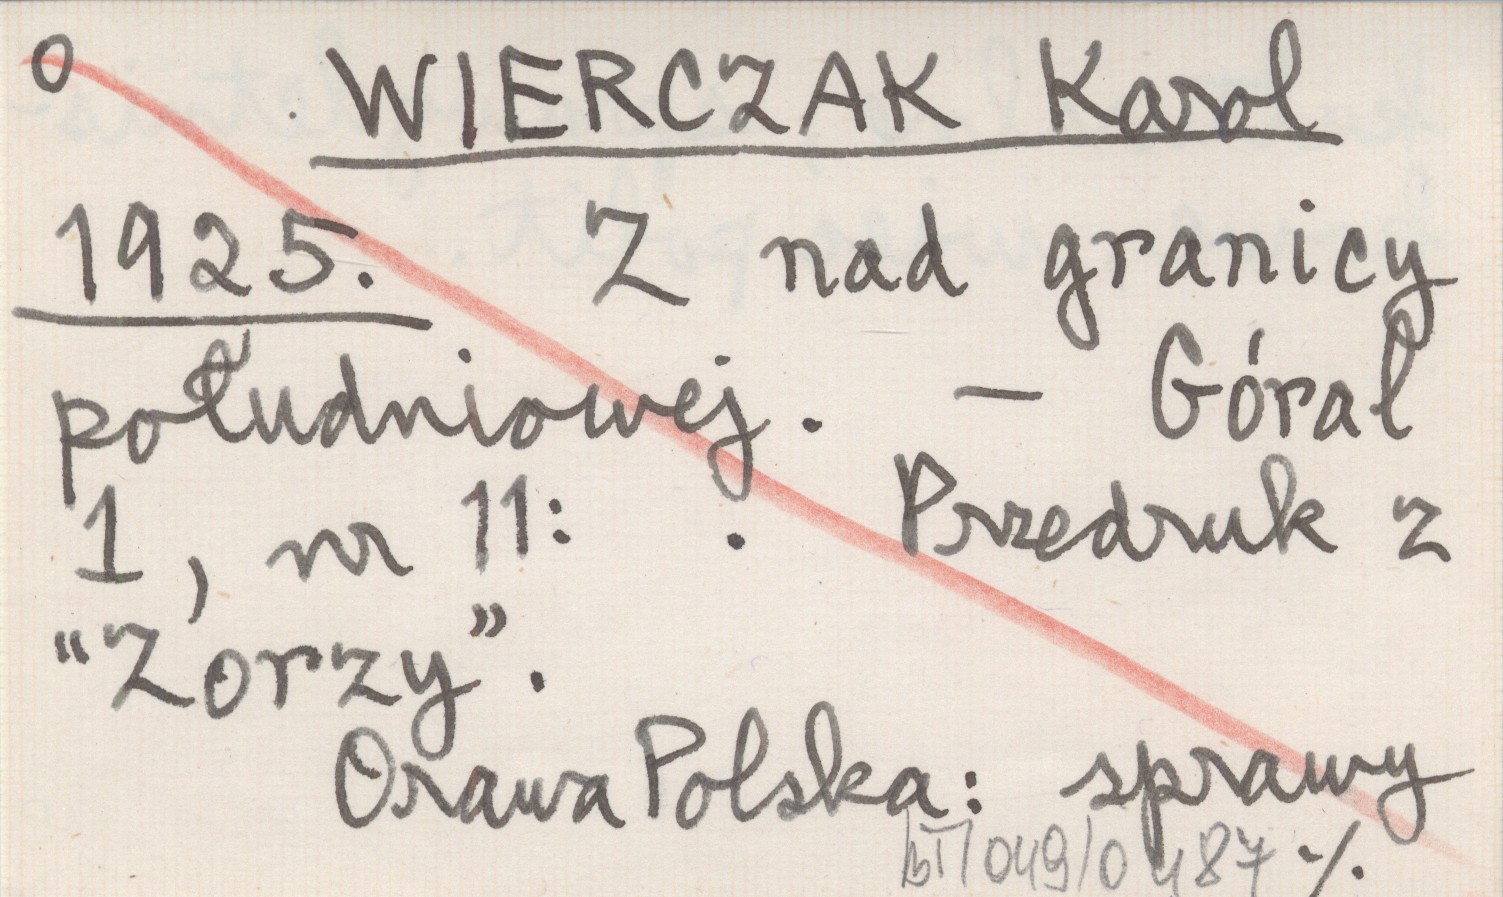 o WIERCZAK Karol
1925. Z nad granicy
południowej. – Góral
1, nr 11: . Przedruk z
"Zorzy".
Orawa Polska: sprawy
BT/049/0487 ./.